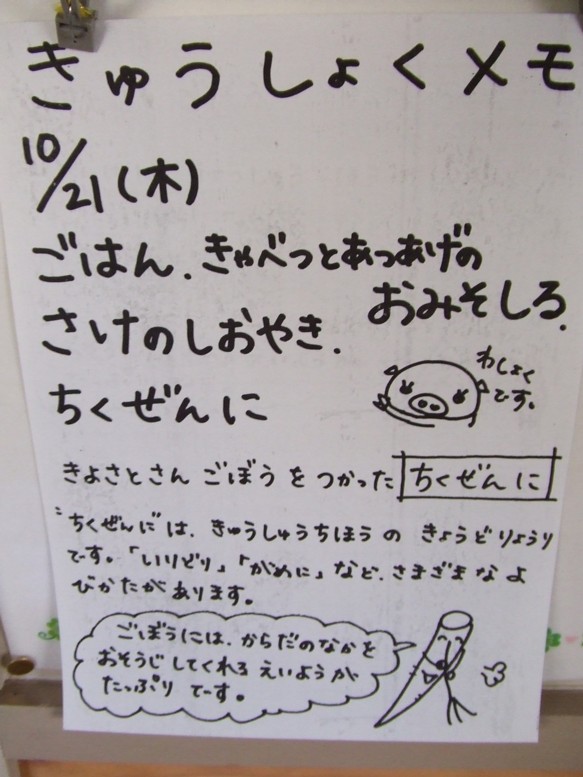 きゅうしょくメモ
10/21(木)
ごはん.きゃべつとあつあげの
おみそしる.
さけのしおやき.
ちくぜんに
わしょく
です。
きよさとさん ごぼう を つかった ちくぜんに
"ちくぜんに"は、きゅうしゅうちほう の きょうどりょうり
です。「いりどり」「がめに」など、さまざまな よ
びかたが あります。
ごぼうには、からだのなかを
おそうじ してくれる えいようが
たっぷり でーす。